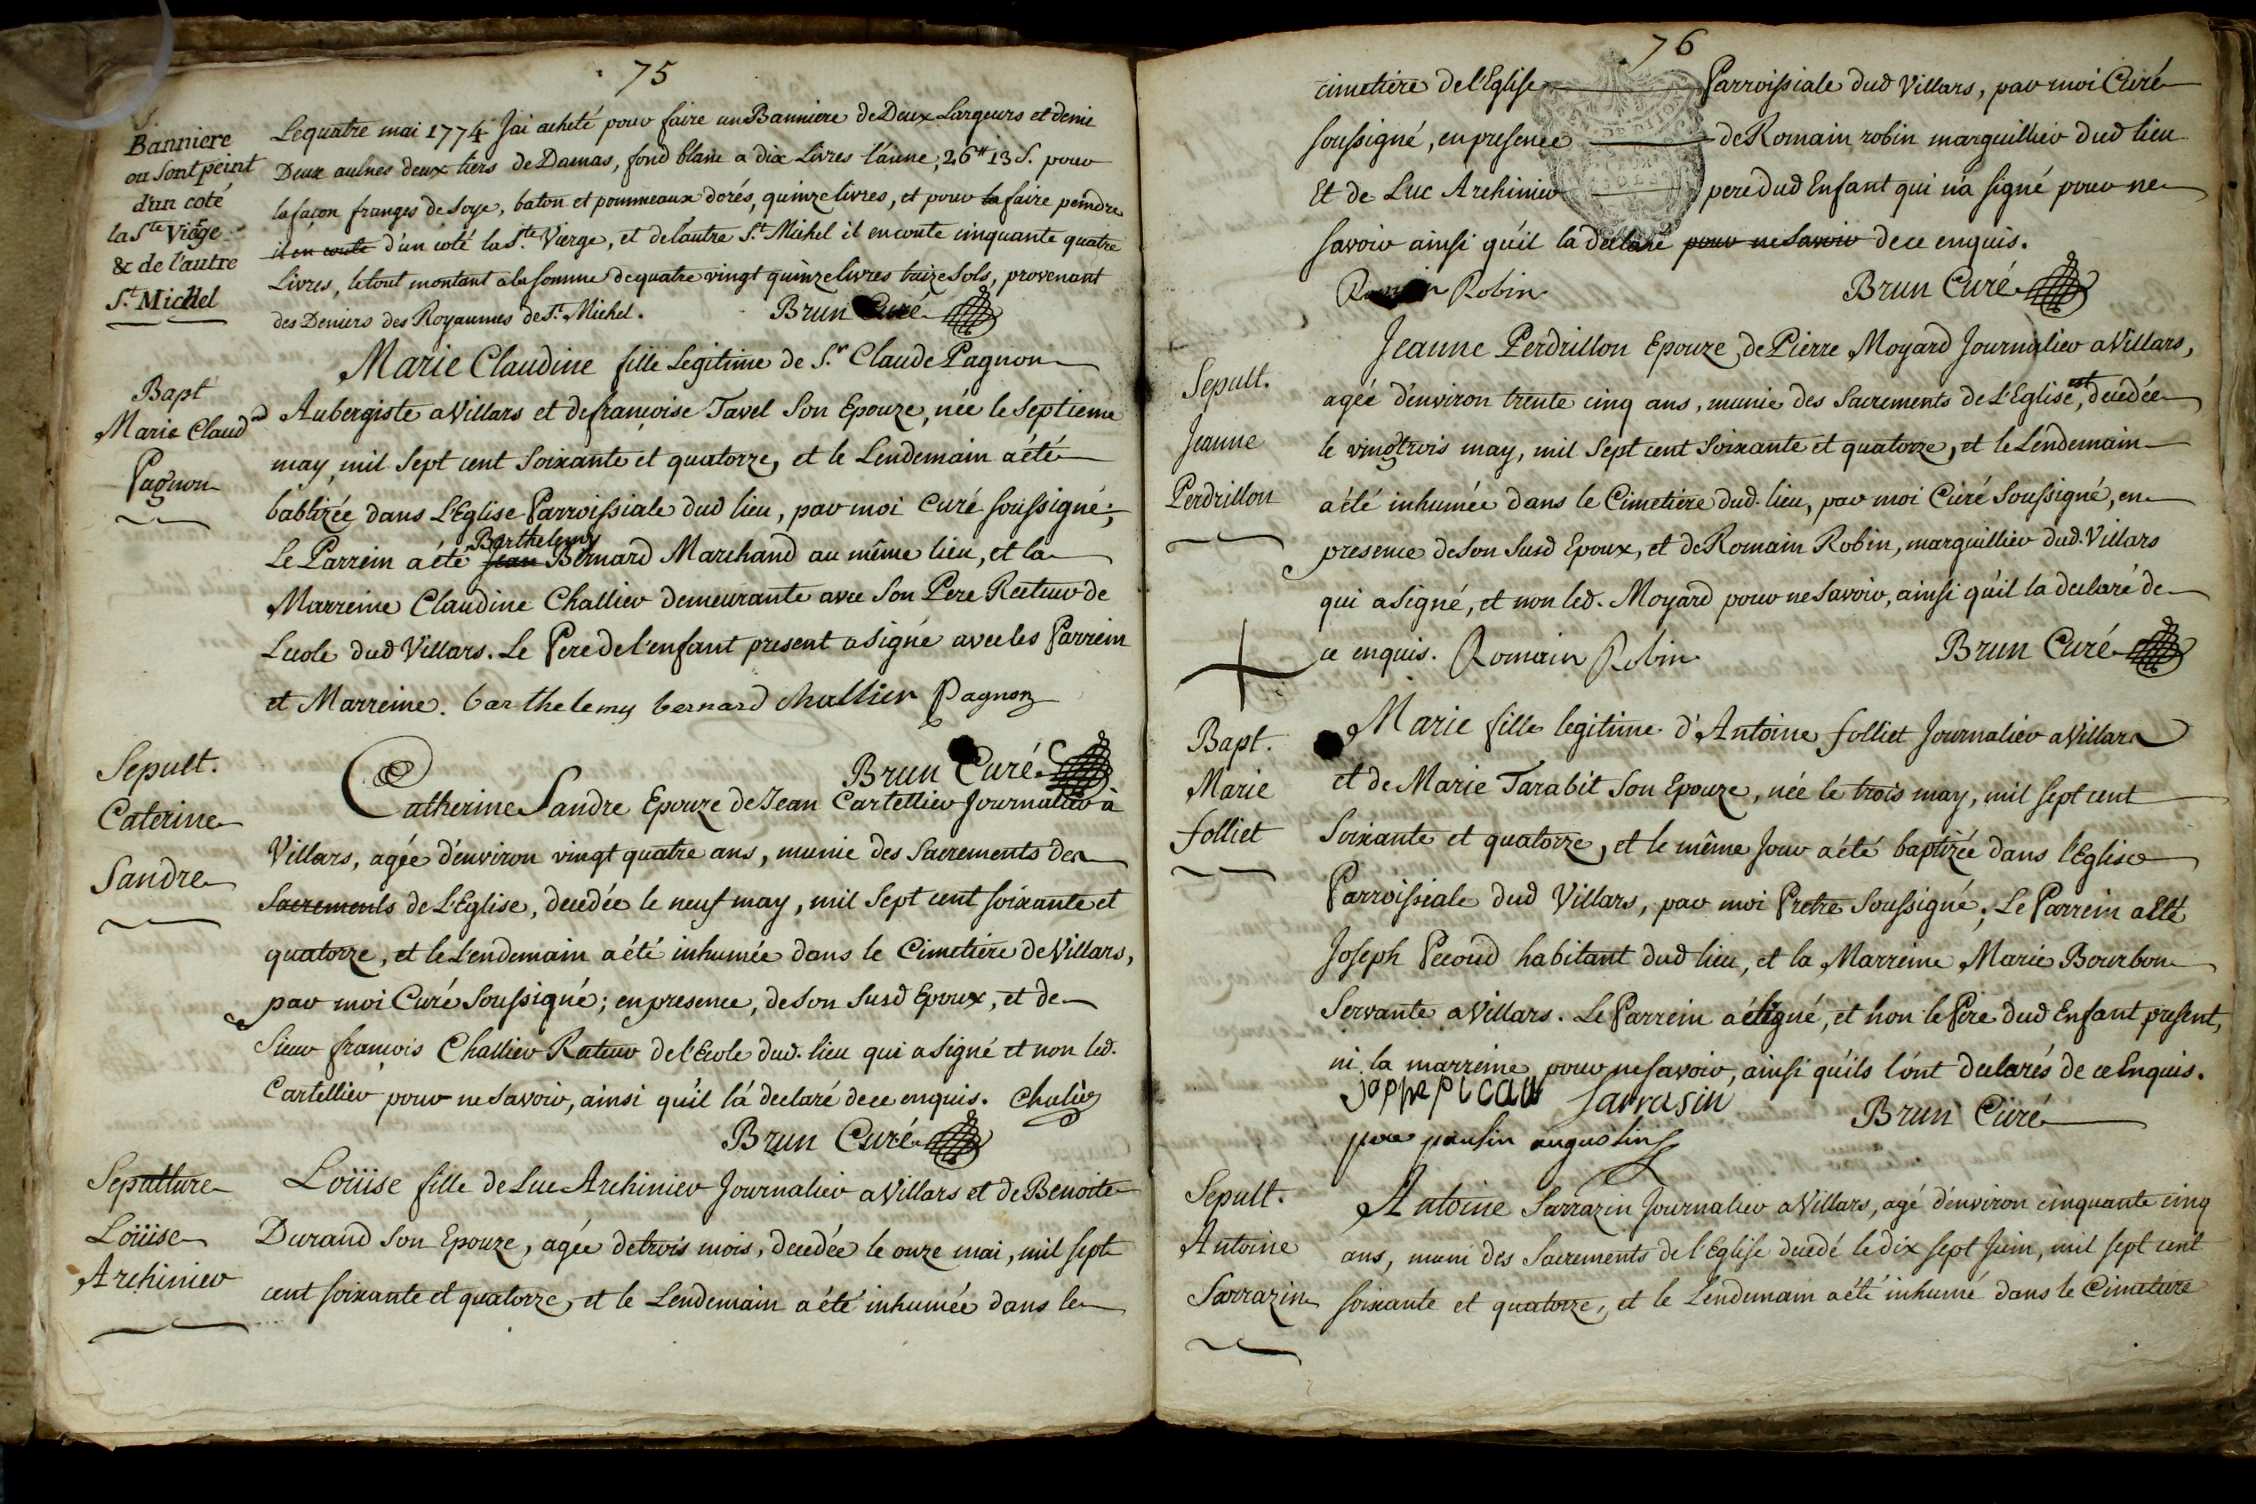 75
Banniere
ou sont peint
d'un coté
la Ste Vierge
& de l'autre
St. Michel
Le quatre mai 1774 Jai acheté pour faire un Banniere de Deux Largeurs et demie
Deux aulnes deux tiers de Damas, fond blanc a dix Livres l'aune; 26# 13 S. pour
la façon franges de Soye, baton et pommeaux dorés, quinze livres, et pour la faire peindre
il en coute d'un coté la Ste. Vierge, et de l'autre St. Michel il en coute cinquante quatre
Livres, le tout montant a la somme de quatre vingt quinze livres treize sols, provenant
des Deniers des Royaumes de St. Michel. Brun Curé
Bapt
Marie Claud
Pagnon
Marie Claudine fille Legitime de Sr. Claude Pagnon
Aubergiste a Villars et de françoise Tavel Son Epouze, née le Septieme
may mil Sept cent Soixante et quatorze, et le Lendemain a été
babtizée dans L'Eglise Parroissiale dud lieu, par moi Curé soussigné;
Barthelemy
Le Parrein a été Jean Bernard Marchand au même lieu, et la
Marreine Claudine Challier demeurante avec Son Pere Recteur de
Lecole dud Villars. Le Pere de l'enfant present a signé avec les Parrein
et Marreine. barthelemy bernard challier Pagnon
Brun Curé
Sepult.
Caterine
Sandre
Catherine Sandre Epouze de Jean Cartellier Journalier à
Villars, agée d'environ vingt quatre ans, munie des Sacrements des
Sacrements de L'Eglise, decédée le neuf may, mil Sept cent soixante et
quatorze, et le Lendemain a été inhumée dans le Cimetiére de Villars,
par moi Curé Soussigné; en presence, de Son Susd Epoux, et de
Sieur françois Challier Recteur de l'Ecole dud. lieu qui a signé et non led.
Cartellier pour ne Savoir, ainsi qu'il l'á declaré de ce enquis. Chalier
Brun Curé
Sepulture
Loüise
Archinier
Loüise fille de Luc Archinier Journalier a Villars et de Benoite
Durand Son Epouze, agée de trois mois, decédée le onze mai, mil sept
cent soixante et quatorze, et le Lendemain a été inhumée dans le
76
cimetiére de l'Eglise Parroissiale dud Villars, par moi Curé
soussigné, en presence de Romain robin marguillier dud lieu
Et de Luc Archinier pere dud Enfant qui n'a signé pour ne
savoir ainsi qu'il la declaré pour ne Savoir de ce enquis.
Romain Robin Brun Curé
Sepult.
Jeanne
Perdrillon
Jeanne Perdrillon Epouze de Pierre Moyard Journalier a Villars,
est
agée d'environ trente cinq ans, munie des Sacrements de L'Eglise, decédée
le vingtrois may, mil Sept cent Soixante et quatorze, et le Lendemain
a été inhumée dans le Cimetiére dud. lieu, par moi Curé Soussigné, en
presence de son Susd Epoux, et de Romain Robin, marguillier dud. Villars
qui a signé, et non led. Moyard pour ne Savoir, ainsi qu'il la declaré de
ce enquis. Romain Robin Brun Curé
Bapt.
Marie
folliet
Marie fille legitime d'Antoine folliet Journalier a Villars
et de Marie Tarabit Son Epouze, née le trois may, mil sept cent
Soixante et quatorze, et le même Jour a été baptizée dans l'Eglise
Parroissiale dud Villars, par moi Pretre Soussigné; Le Parrein a Eté
Joseph Pecoud habitant dud lieu, et la Marreine Marie Bourbon
Servante a Villars. Le Parrein a signé, et non le Pére dud Enfant present,
ni la marreine pour ne savoir, ainsi qu'ils l'ont declarés de ce Enquis.
Sarrasin Brun Curé
augustin
Sepult.
Antoine
Sarrazin
Antoine Sarrazin Journalier a Villars, agé d'environ cinquante cinq
ans, muni des Sacrements de l'Eglise decedé le dix sept Juin, mil sept cent
soixante et quatorze, et le Lendemain a été inhumé dans le Cimetiere